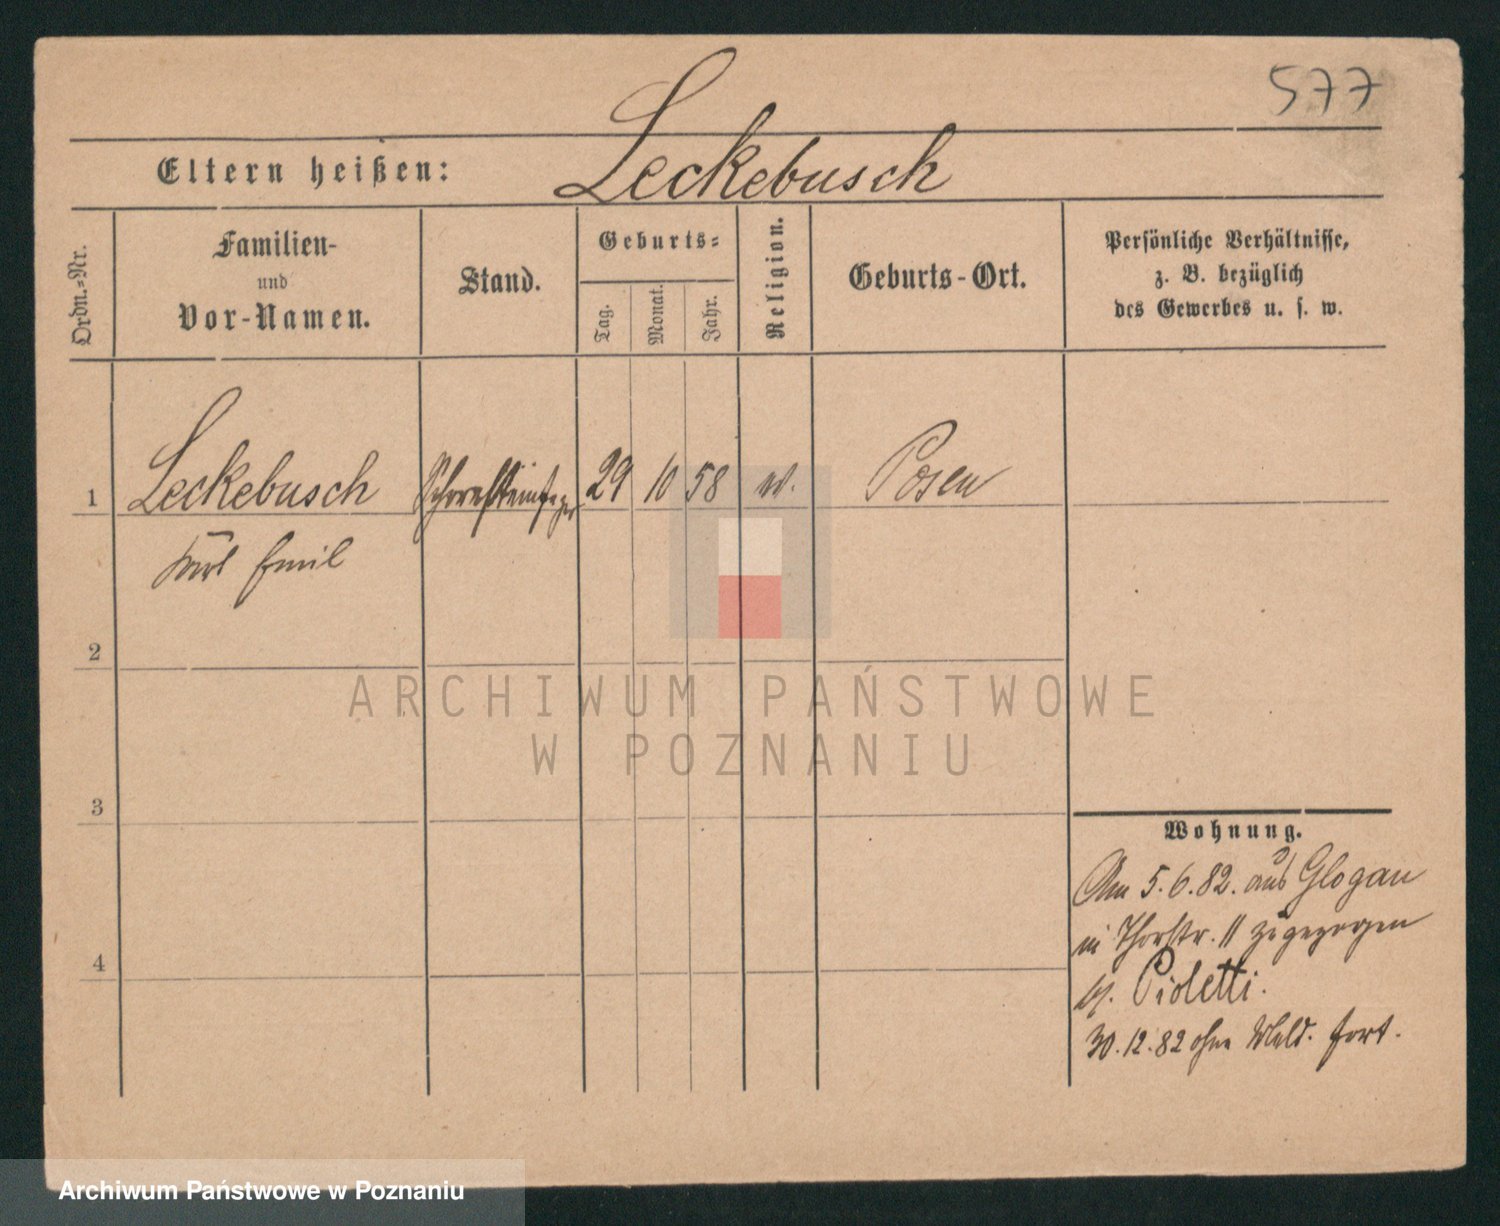 577
Eltern heißen: Leckebusch
Ordn.=Nr.
Familien-
und
Vor-Namen.
Stand.
Geburts=
Tag.
Monat.
Jahr.
Religion.
Geburts-Ort.
Persönliche Verhältnisse,
z. B. bezüglich
des Gewerbes u. s. w.
1 Leckebusch Schornsteinfeger 29 10 58 Posen
Karl Emil
2
3
4
Wohnung.
Am 5.6.82. aus Glogau
in Thorstr. 11 zugezogen
bei Pioletti.
30.12.82 ohne Meld. fort.
ARCHIWUM PAŃSTWOWE
W POZNANIU
Archiwum Państwowe w Poznaniu